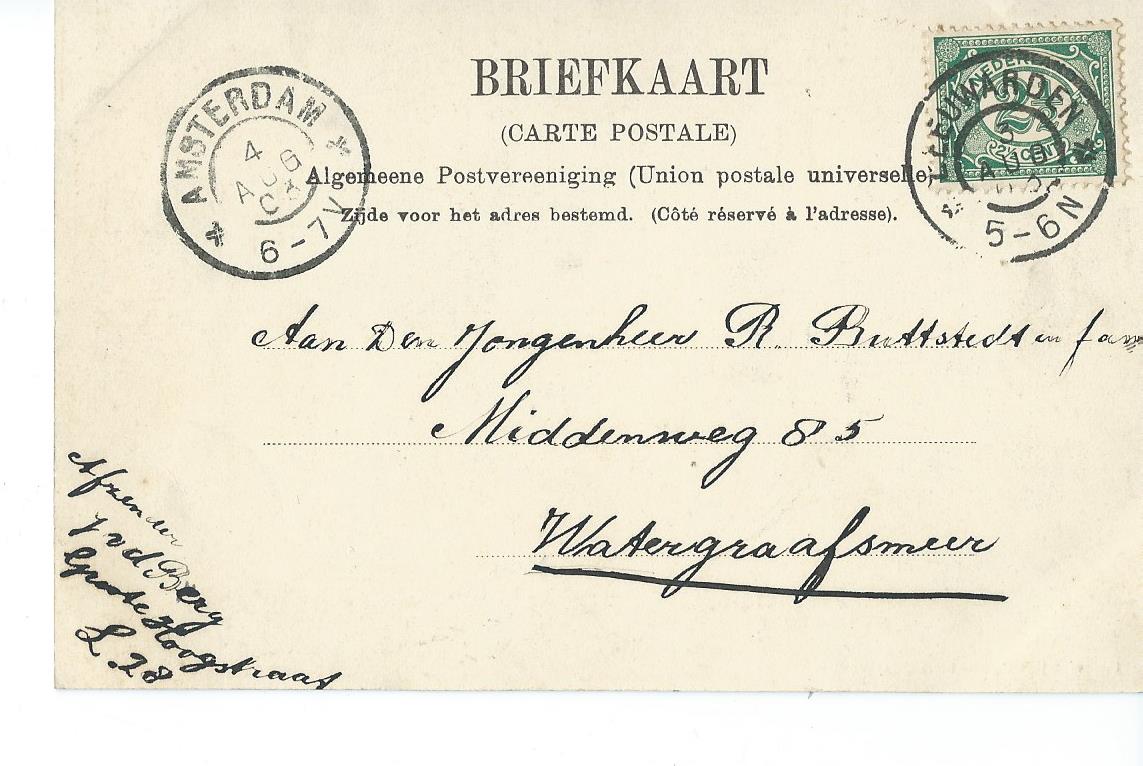 BRIEFKAART
(CARTE POSTALE)
Algemeene Postvereeniging (Union postale universelle)
Zijde voor het adres bestemd. (Côté réservé à l'adresse).
AMSTERDAM
4
AUG
6-7V
NEDER
2½
2½ CENT
LEEUWARDEN
AUG
5-6N
Aan Den Jongenheer R. Buttstedt en fam
Middenweg 85
Watergraafsmeer
Afzender
J vd Berg
Groote Hoogstraat
L. 28